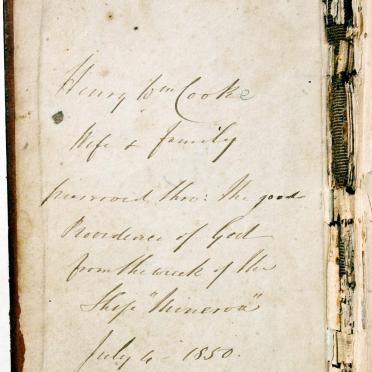 Henry Wm Cooke
Wife & family
preserved thro: the good
Providence of God
from the wreck of the
Ship "Minerva"
July 4 - 1850.